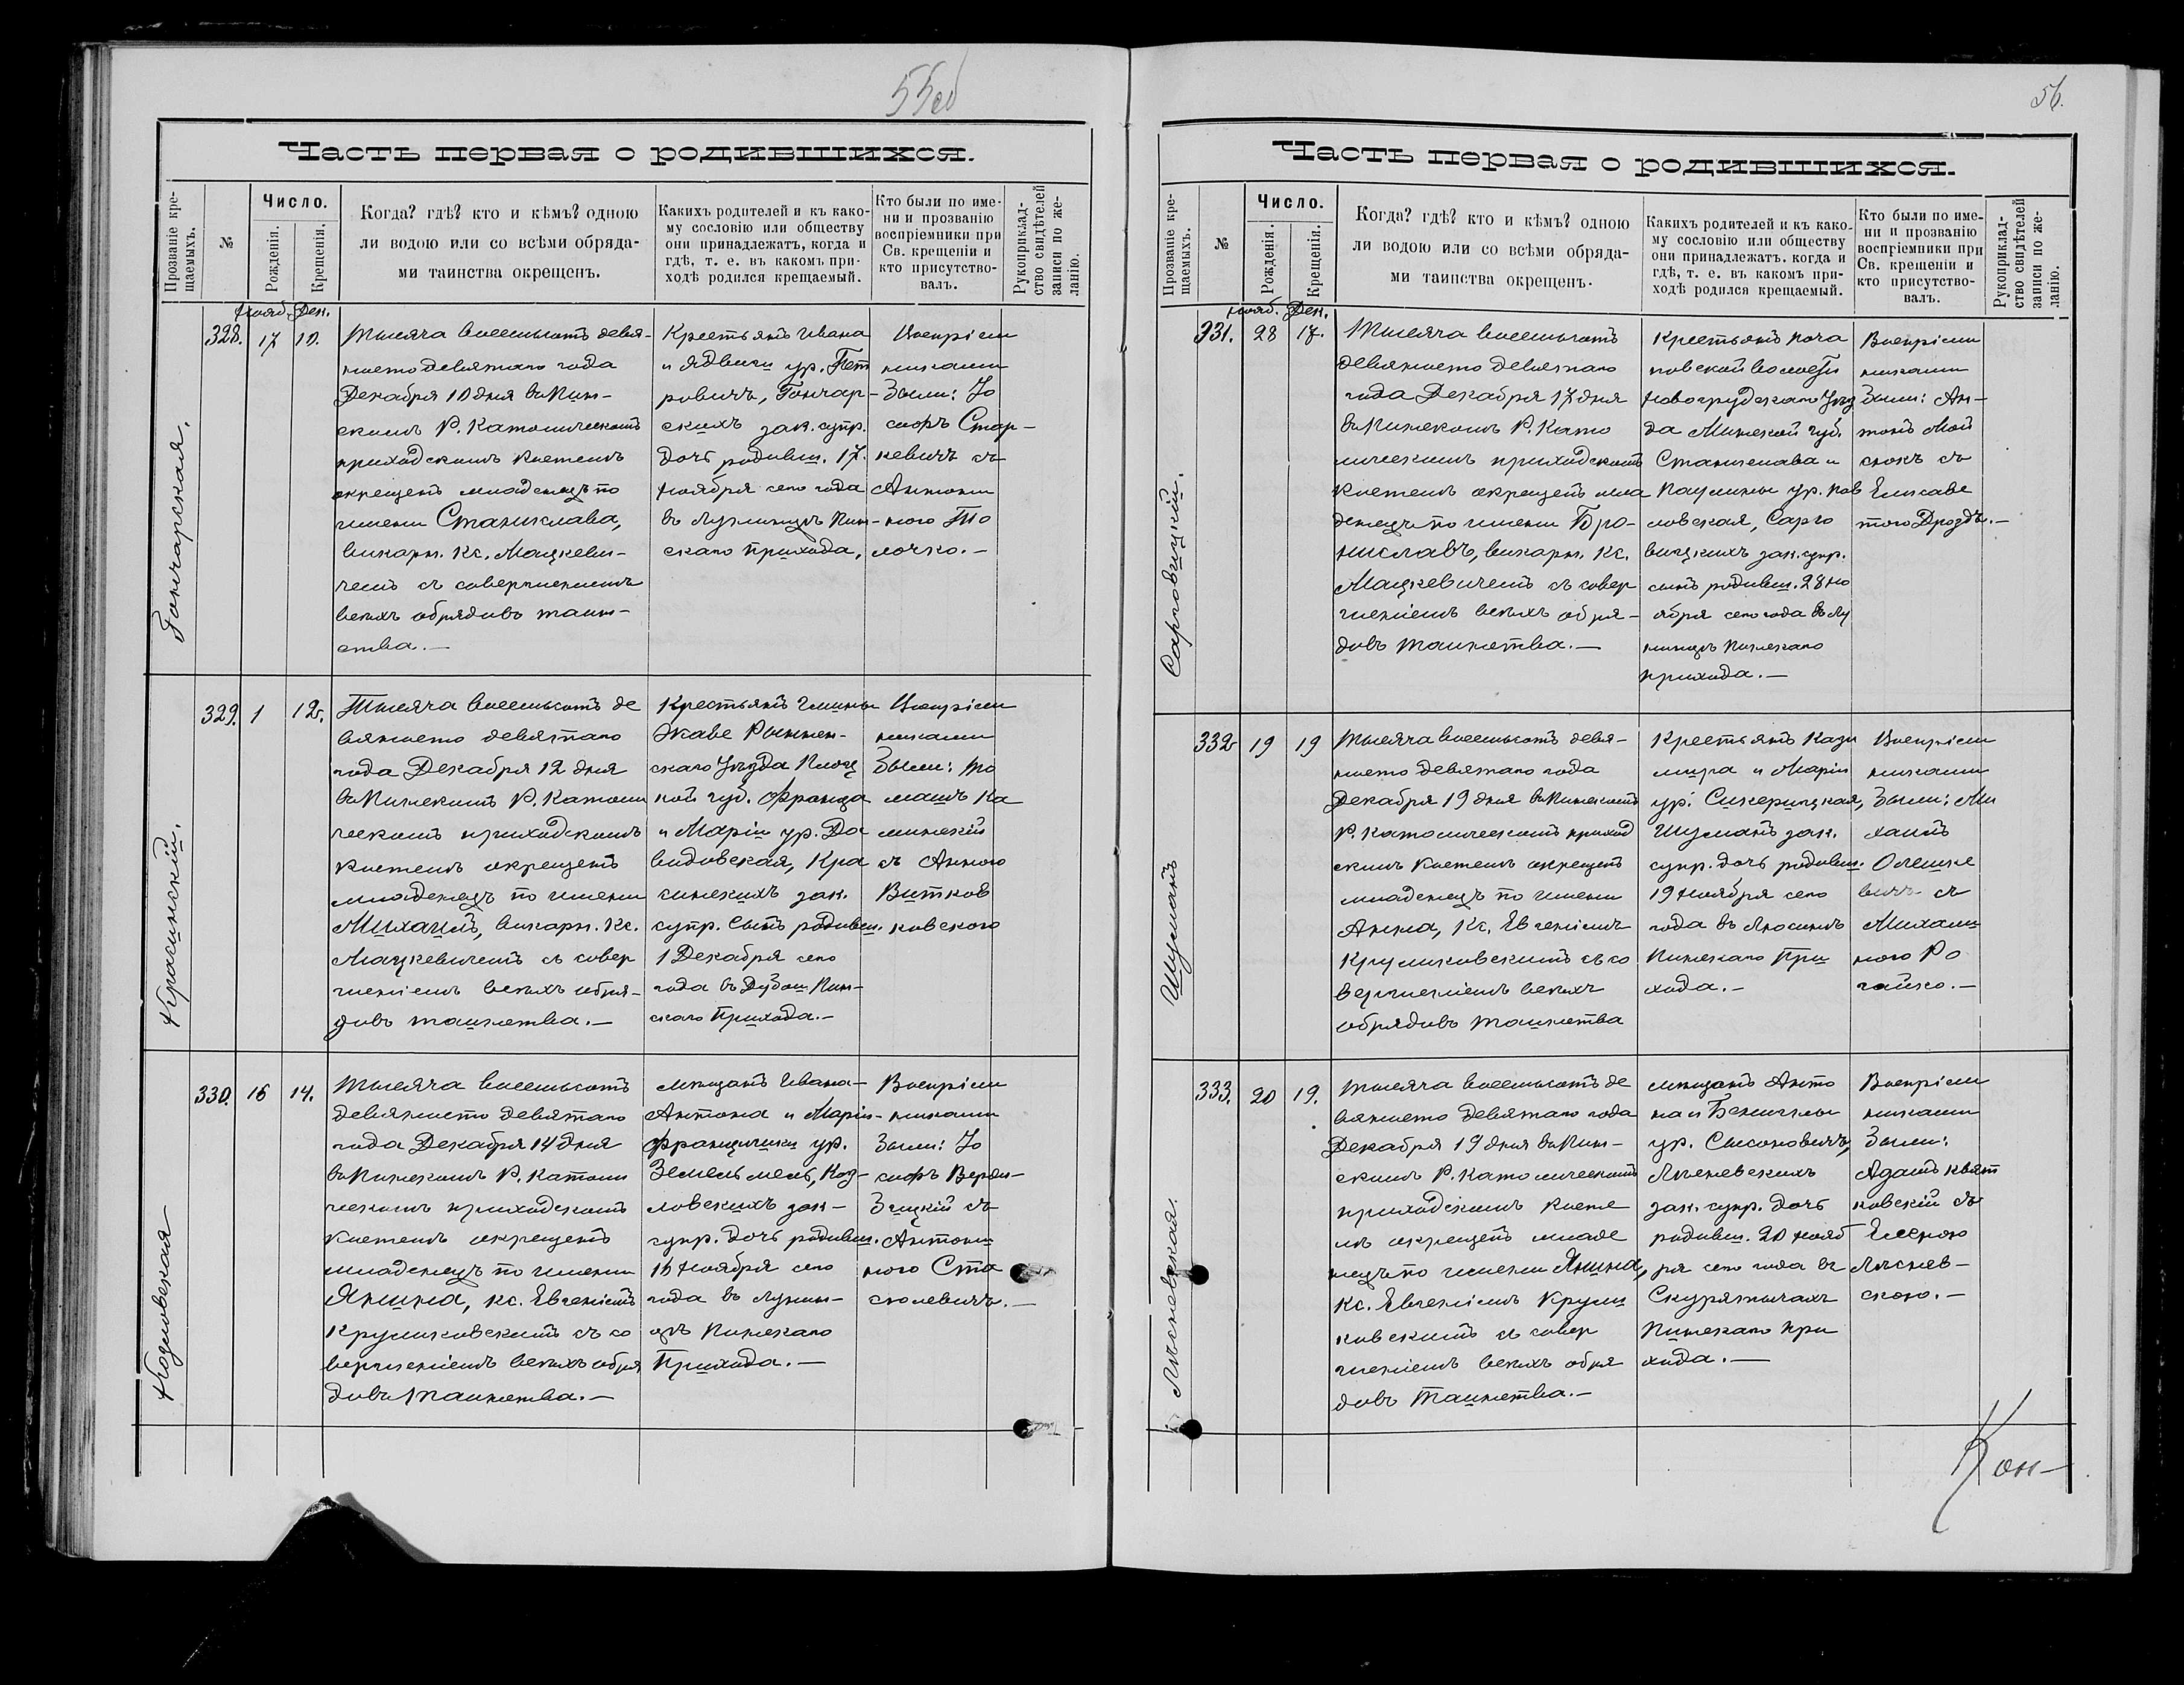 55об
Часть первая о родившихся.
Прозваніе кре-
щаемыхъ.
№
Число.
Рожденія.
Крещенія.
Когда? гдѣ? кто и кѣмъ? одною
ли водою или со всѣми обряда-
ми таинства окрещенъ.
Какихъ родителей и къ како-
му сословію или обществу
они принадлежатъ, когда и
гдѣ, т. е. въ какомъ при-
ходѣ родился крещаемый.
Кто были по име-
ни и прозванію
воспріемники при
Св. крещеніи и
кто присутство-
валъ.
Рукоприклад-
ство свидѣтелей
записи по же-
ланію.
Нояб. Дек.
Гончарская.
328. 17 10.
Тысяча восемьсотъ девя-
носто девятаго года
Декабря 10 дня въ Пин-
скомъ Р. Католическомъ
приходскомъ костелѣ
окрещенъ младенецъ по
имени Станислава,
викарн. Кс. Мацкеви-
чемъ съ совершеніемъ
всѣхъ обрядовъ таин-
ства.—
Крестьянъ Ивана
и Ядвиги ур. Пет
ровичъ, Гончар-
скихъ зак. супр.
дочь родивш. 17.
Ноября сего года
въ Лунинцѣ Пин-
скаго прихода,
Воспріем
никами
были: Іо
сифъ Стар-
кевичъ съ
Антони
ною То
лочко.—
Красинскій.
329. 1 12.
Тысяча восемьсотъ де
вяносто девятаго
года Декабря 12 дня
въ Пинскомъ Р. Католи
ческомъ приходскомъ
костелѣ окрещенъ
младенецъ по имени
Михаилъ, викарн. Кс.
Мацкевичемъ съ совер
шеніемъ всѣхъ обря-
довъ таинства.—
Крестьянъ гмины
Экаве Рыпин-
скаго Уѣзда Плоц
кой губ. Франца
и Маріи ур. Да
видовская, Кра
синскихъ зак.
супр. сынъ родивш.
1 Декабря сего
года въ Дубои Пин-
скаго Прихода.—
Воспріем
никами
были: То
машъ Ка
минскій
съ Анною
Витков
ковскою
Козловская
330. 16 14.
Тысяча восемьсотъ
девяносто девятаго
года Декабря 14 дня
въ Пинскомъ Р. Католи
ческомъ приходскомъ
костелѣ окрещенъ
младенецъ по имени
Янина, кс. Евгеніемъ
Круликовскимъ съ со
вершеніемъ всѣхъ обря
довъ таинства.—
Мѣщанъ Ивана-
Антона и Маріи-
Францишки ур.
Земельмель, Коз-
ловскихъ зак-
супр. дочь родивш.
16 Ноября сего
года въ Лунин-
цѣ Пинскаго
Прихода.—
Воспріем
никами
были: Іо
сифъ Верви-
зицкій съ
Антони
ною Ста
сюлевичъ.—
56.
Часть первая о родившихся.
Прозваніе кре-
щаемыхъ.
№
Число.
Рожденія.
Крещенія.
Когда? гдѣ? кто и кѣмъ? одною
ли водою или со всѣми обряда-
ми таинства окрещенъ.
Какихъ родителей и къ како-
му сословію или обществу
они принадлежатъ. когда и
гдѣ, т. е. въ какомъ при-
ходѣ родился крещаемый.
Кто были по име-
ни и прозванію
воспріемники при
Св. крещеніи и
кто присутство-
валъ.
Рукоприклад-
ство свидѣтелей
записи по же-
ланію.
Нояб. Дек.
Сарговицкій.
331. 28 17.
Тысяча восемьсотъ
девяносто девятаго
года Декабря 17 дня
въ Пинскомъ Р. Като
лическомъ приходскомъ
костелѣ окрещенъ мла
денецъ по имени Бро-
ниславъ, викарн. Кс.
Мацкевичемъ съ совер
шеніемъ всѣхъ обря-
довъ таинства.—
Крестьянъ Поча
повской волости
Новогрудскаго Уѣз
да Минской губ.
Станислава и
Паулины ур. Пав
ловская, Сарго
вицкихъ зак. супр.
сынъ родивш. 28 Но
ября сего года въ Лу
нинцѣ Пинскаго
прихода.—
Воспріем
никами
были: Ан-
тонъ Мой
снокъ съ
Елисаве
тою Дроздъ.—
Шуманъ
332 19 19
Тысяча восемьсотъ девя-
носто девятаго года
Декабря 19 дня въ Пинскомъ
Р. Католическомъ приход
скомъ костелѣ окрещенъ
младенецъ по имени
Анна, Кс. Евгеніемъ
Круликовскимъ съ со
вершеніемъ всѣхъ
обрядовъ таинства
Крестьянъ Кази
мира и Маріи
ур. Сикерицкая,
Шуманъ зак.
супр. дочь родивш.
19 Ноября сего
года въ Люсинѣ
Пинскаго При
хода.—
Воспріем
никами
были: Ми
хаилъ
Олешке
вичъ съ
Михали
ною Ро
гайко.—
Лѣсневская.
333. 20 19.
Тысяча восемьсотъ де
вяносто девятаго года
Декабря 19 дня въ Пин-
скомъ Р. Католическомъ
приходскомъ косте
лѣ окрещенъ младе
нецъ по имени Янина,
Кс. Евгеніемъ Крули
ковскимъ съ совер
шеніемъ всѣхъ обря
довъ таинства.—
Мѣщанъ Анто
на и Бенигны
ур. Сысоновичъ,
Лѣсневскихъ
зак. супр. дочь
родивш. 20 Нояб
ря сего года въ
Скурятычахъ
Пинскаго при
хода.—
Воспріем
никами
были:
Адамъ Квят
ковскій съ
Еленою
Лѣснев-
скою.—
Кон—